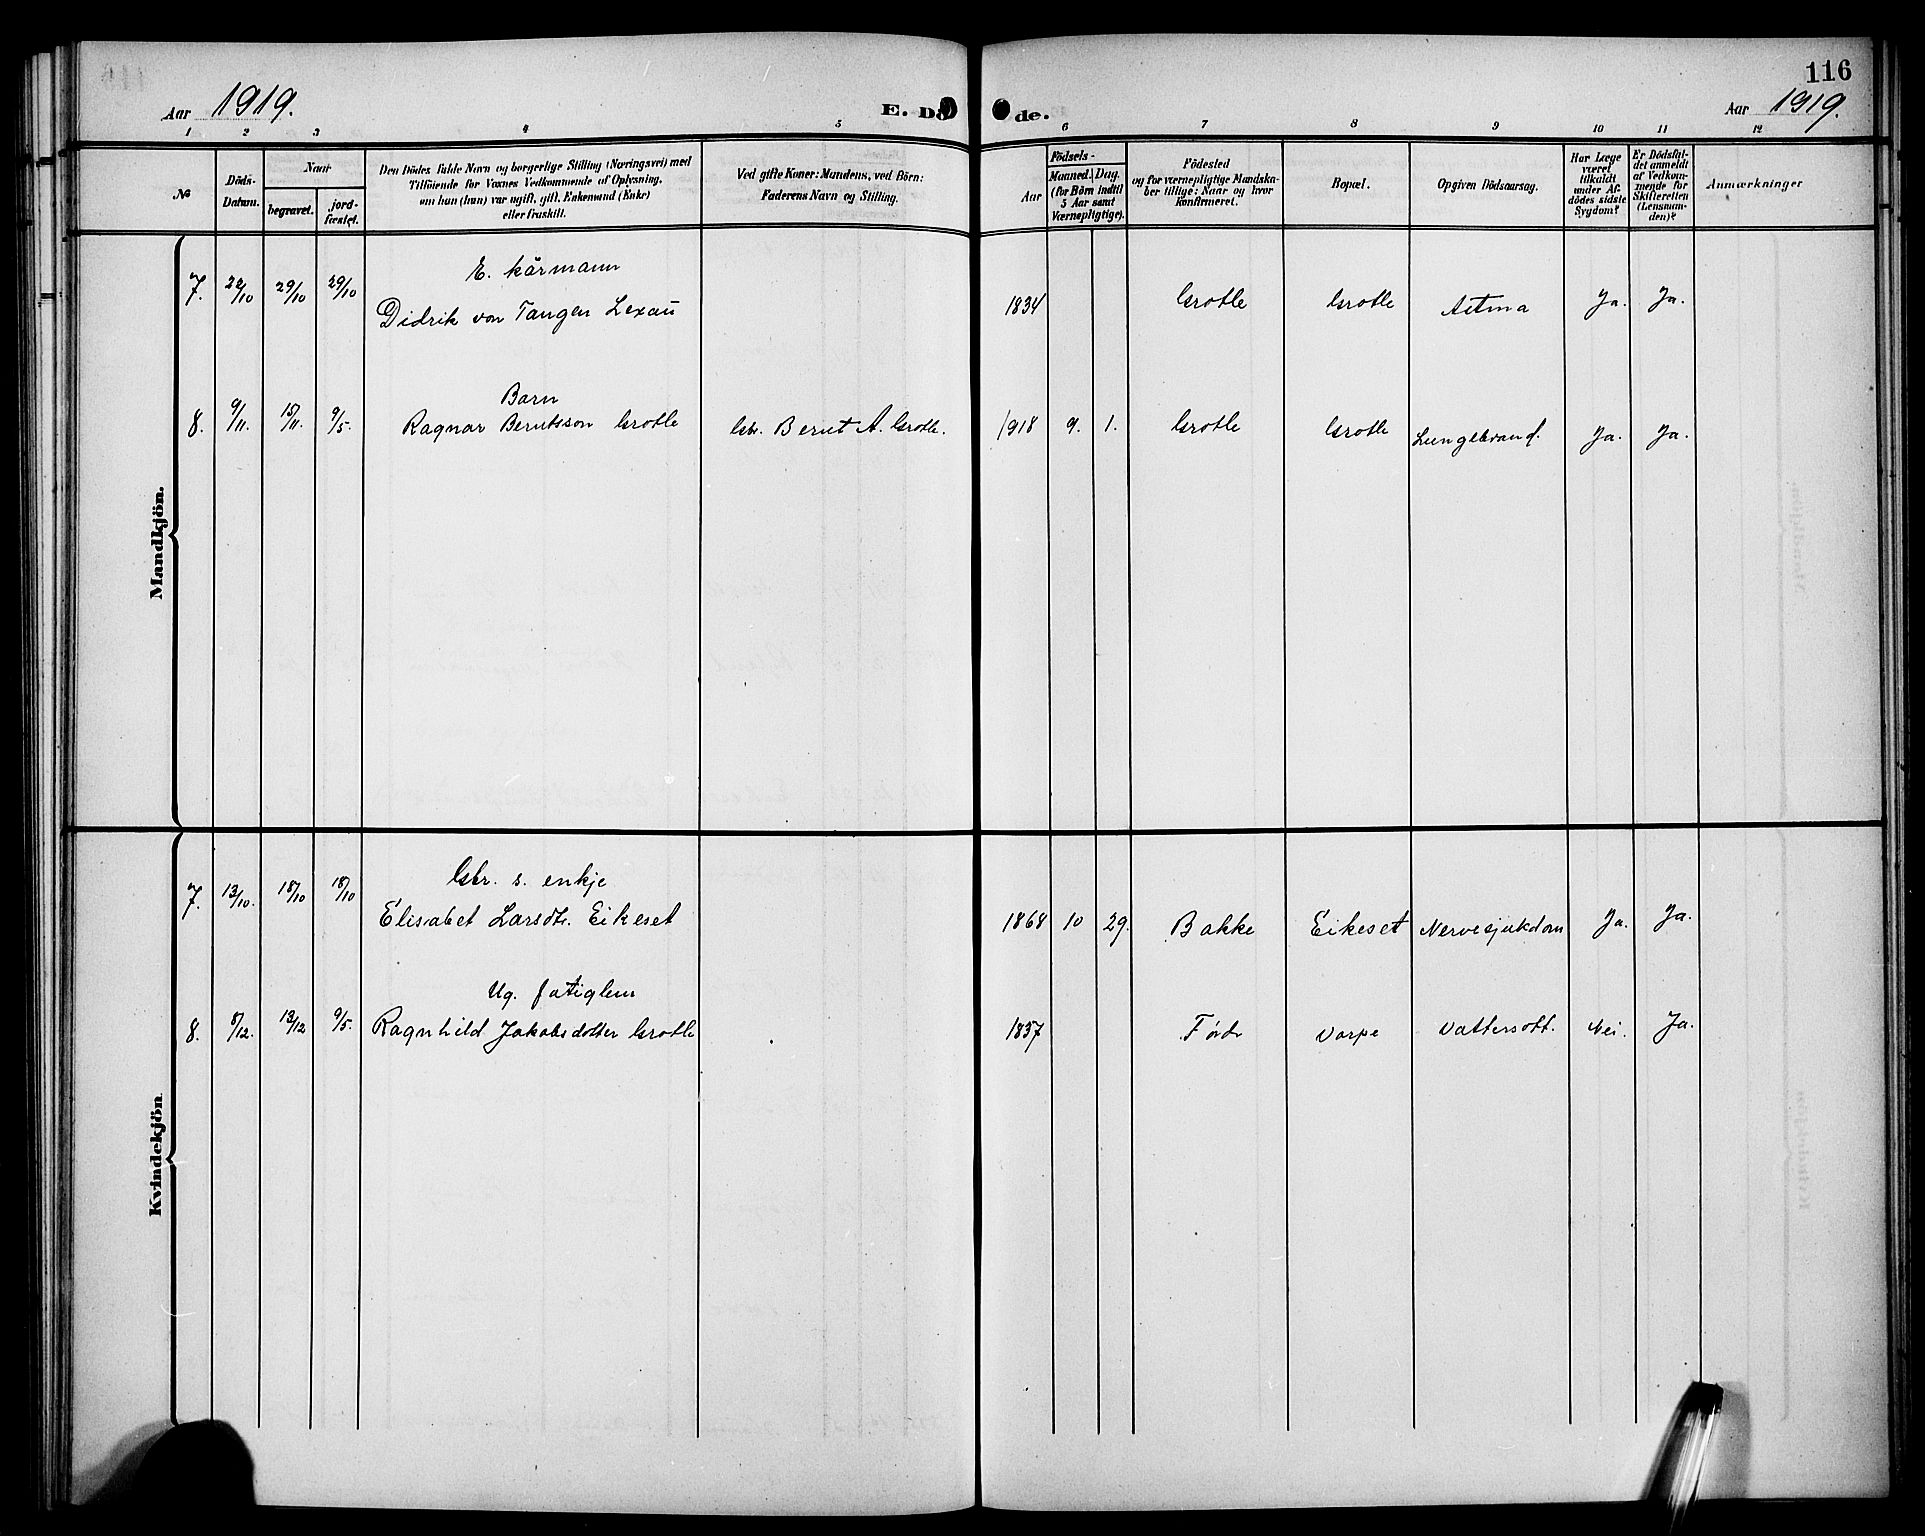 116
Aar 1919.
E. Dö de.
Aar 1919.
1 2 3 4 5 6 7 8 9 10 11 12
№
Döds-
Datum.
Naar
begravet.
jord-
fæstet.
Den Dödes fulde Navn og borgerlige Stilling (Næringsvei) med
Tilföiende for Voxnes Vedkommende af Oplysning,
om han (hun) var ugift, gift, Enkemand (Enke)
eller fraskilt.
Ved gifte Koner: Mandens, ved Börn:
Faderens Navn og Stilling.
Födsels-
Aar
Maaned. Dag.
(for Börn indtil
5 Aar samt
Værnepligtige).
Födested
og for værnepligtige Mandska-
ber tillige: Naar og hvor
konfirmeret.
Bopæl.
Opgiven Dödsaarsag.
Har Læge
været
tilkaldt
under Af-
dödes sidste
Sygdom?
Er Dödsfal-
det anmeldt
af Vedkom-
mende for
Skifteretten
(Lensman-
den)?
Anmærkninger
Mandkjön.
E. kårmann
7. 22/10 29/10 29/10 Didrik von Tangen Lexau 1834 Grotle Grotle Astma Ja. Ja.
Barn
8. 9/11. 15/11. 9/5. Ragnar Berntsson Grotle Gbr. Bernt A. Grotle. 1918 9. 1. Grotle Grotle Lungebrand. Ja. Ja.
Kvindekjön
Gbr. s. enkje
7. 13/10. 18/10 18/10 Elisabet Larsdtr. Eikeset 1868 10 29. Bakke Eikeset Nervesjukdom Ja. Ja.
Ug. fatiglem
8. 8/12. 13/12 9/5. Ragnhild Jakobsdotter Grotle 1837 Førde Varpe Vattersott. Nei. Ja.